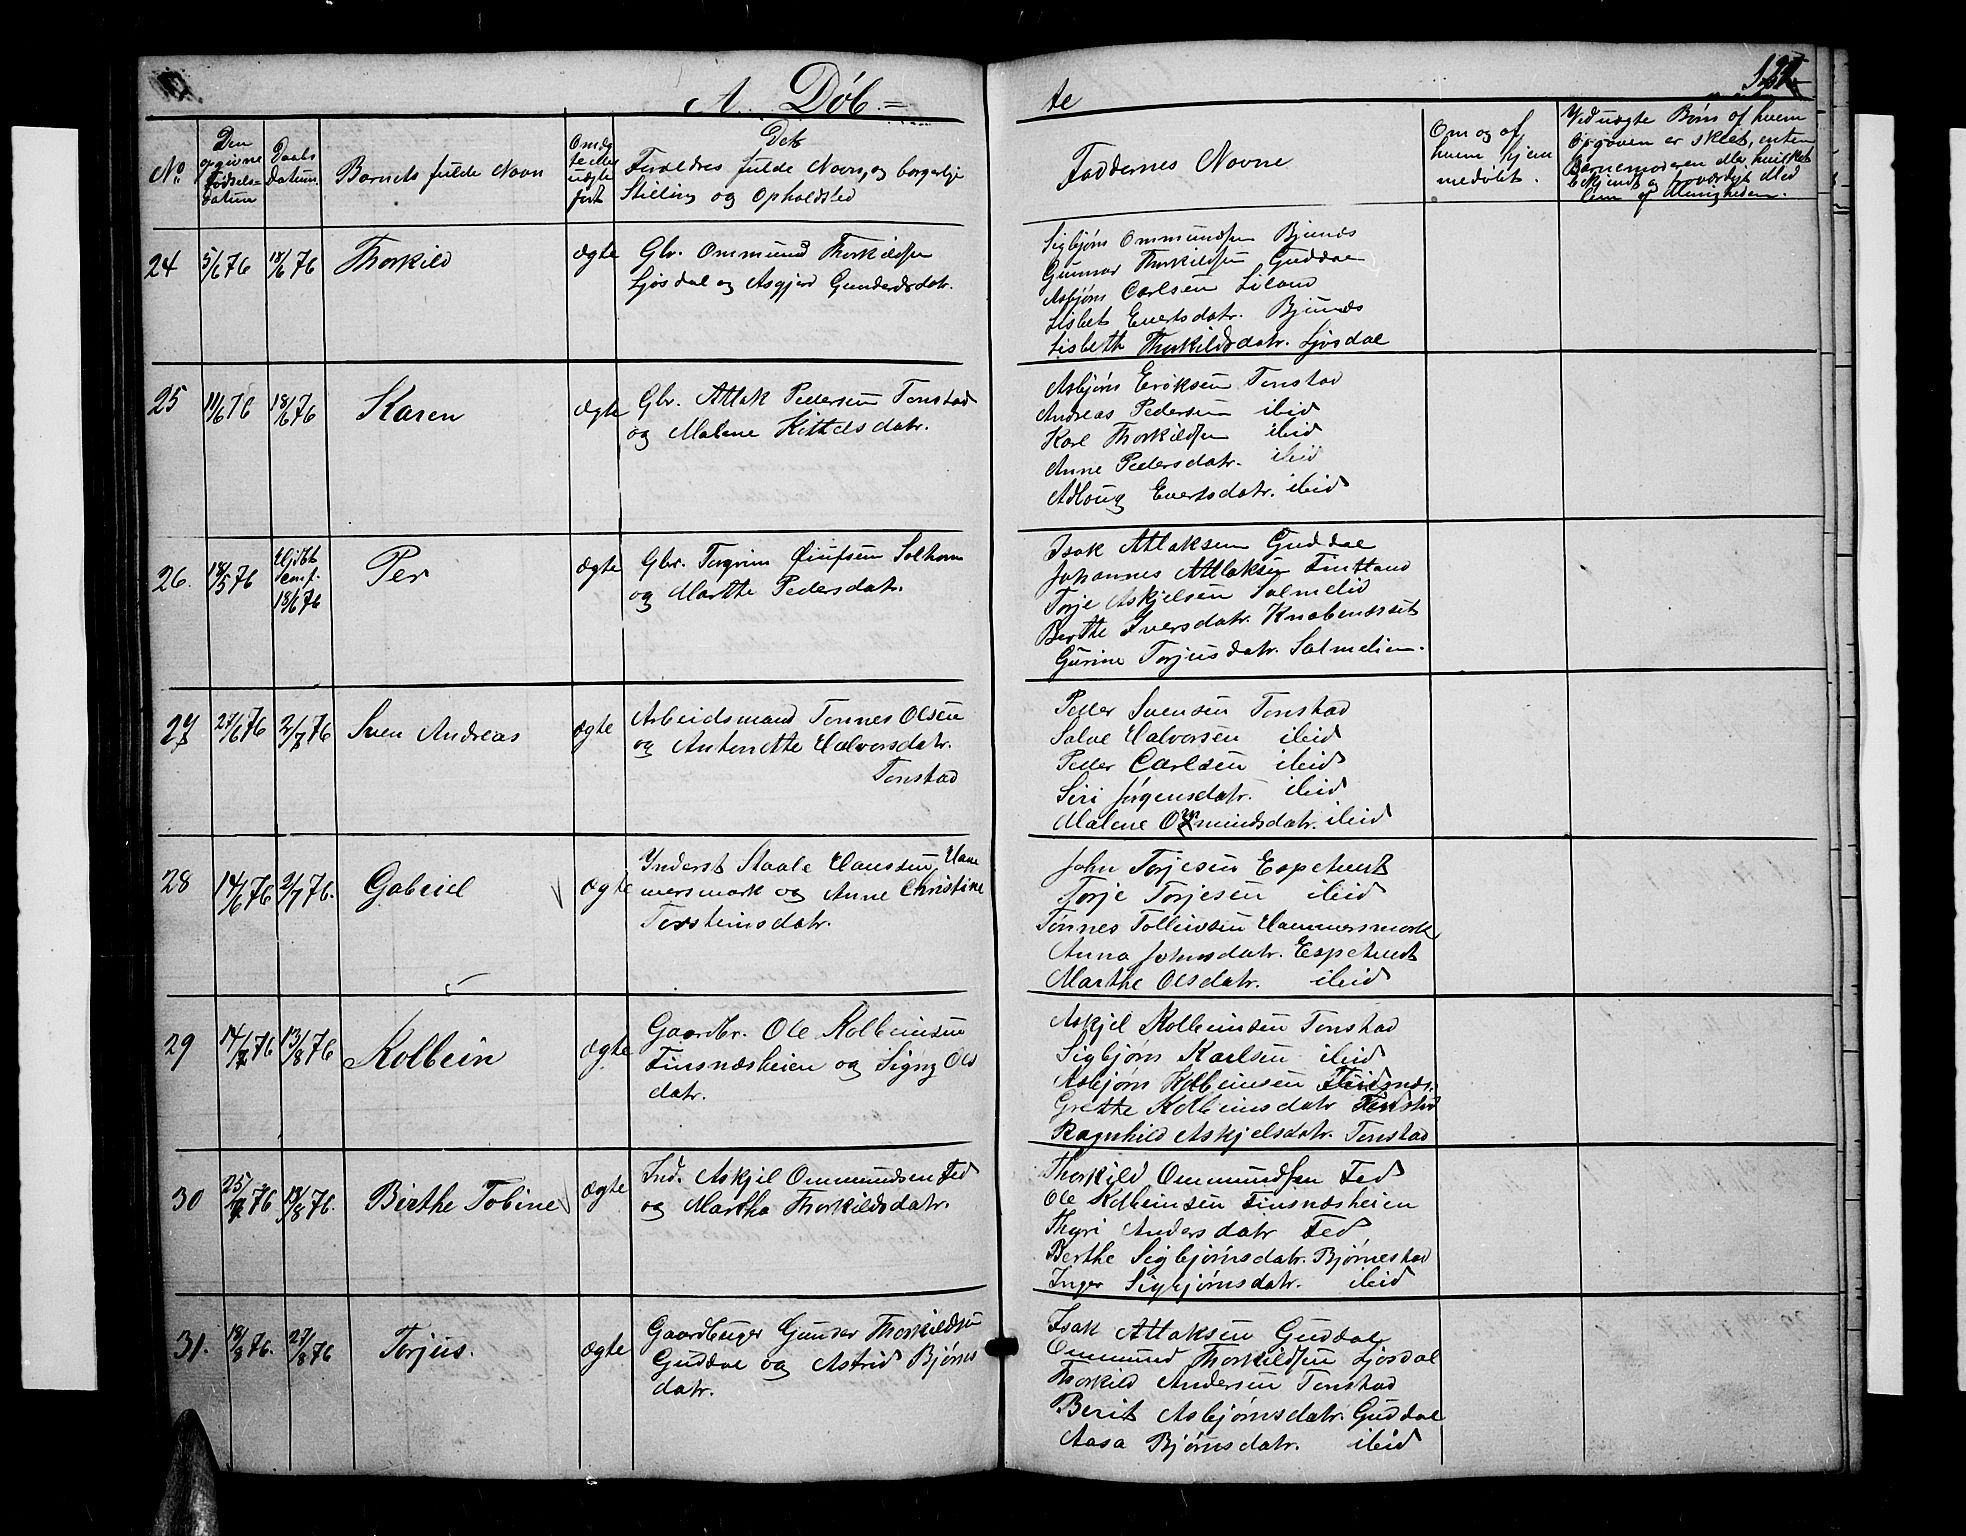 A. Døb=
te
No.
Den opgivne Fødsels-datum
Daabs Datum
Barnets fulde Navn
Om ægte eller uægte født
Dets Forældres fulde Navn, og borgerlige Stilling og Opholdsted
Faddernes Navne
Om og af hvem hjemmedøbt.
Ved uægte Børn af hvem Opgaven er skeet, enten Barnemoderen eller hvilket bekjendt og troværdigt Medlem af Menigheden.
24 5/6 76 18/6 76 Thorkild ægte Gbr. Ommund Thorkildsen
Ljosdal og Asgjerd Gundersdatr.
Sigbjørn Ommundsen Bjunes
Gunnar Thorkildsen Guddal
Asbjørn Carlsen Liland
Lisbet Evertsdatr. Bjunes
Lisbeth Thorkildsdatr. Ljosdal
25 11/6 76 18/6 76 Karen ægte Gbr. Atlak Pedersen Tonstad
og Malene Kittelsdatr.
Asbjørn Eriksen Tonstad
Andreas Pedersen ibid
Karl Thorkildsen ibid
Anne Pedersdatr. ibid
Adloug Evertsdatr. ibid
26. 18/5 76 Hjdbt
conf.
18/6 76 Per ægte Gbr. Tergrim Salhom
og Marthe Pedersdatr.
Isak Atlaksen Guddal
Johannes Atlaksen Fintland
Torje Askjelsen Salmelid
Berthe Iversdatr. Knabenæset
Gurine Torjusdatr. Salmelien.
27 27/6 76 2/7 76 Sven Andreas ægte Arbeidsmand Tønnes Olsen
og Antonette Halvorsdatr.
Tonstad
Peder Svensen Tonstad
Salve Halvorsen ibid
Peder Carlsen ibid
Siri Jørgensdatr. ibid
Malene Ommundsdatr. ibid
28 14/6 76 2/7 76. Gabriel ægte Inderst Staale Hanssen, Ham
mersmark og Anne Christine
Torsteinsdatr.
John Torjesen Espetvedt
Torje Torjesen ibid
Tønnes Tolleivsen Hammersmark
Anna Johnsdatr. Espetvedt
Marthe Olsdatr. ibid
29 14/7 76 13/8 76 Kolbein ægte Gaardbr. Ole Kolbeinsen
Finsnæsheien og Signy Ols
datr.
Askjel Kolbeinsen Tonstad
Sigbjørn Karlsen ibid
Asbjørn Kolbeinsen
Grethe Kolbeinsdatr Tonstad
Ragnhild Askjelsdatr. Tonstad
30 25/7 76 13/8 76. Birthe Tobine ægte Ind. Askjel Ommundsen Fed
og Martha Thorkildsdatr.
Thorkild Ommundsen Fed
Ole Kolbeinsen Finsnæsheien
Thyri Andersdatr Fed
Berthe Sigbjørnsdatr. Bjørnestad
Inger Sigbjørnsdatr. ibid
31. 18/8 76. 27/8 76 Torjus. ægte Gaardbruger Gunder Thorkildsen
Guddal og Astrid Bjørns
datr.
Isak Atlaksen Guddal
Ommund Thorkildsen Ljosdal
Thorkild Andersen Tonstad
Berit Asbjørnsdatr. Guddal
Aasa Bjørnsdatr. ibid